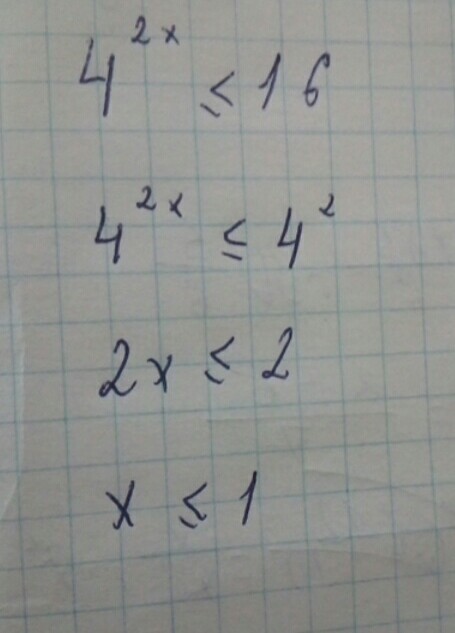 4^{2x} ≤ 16
4^{2x} ≤ 4^2
2x ≤ 2
x ≤ 1